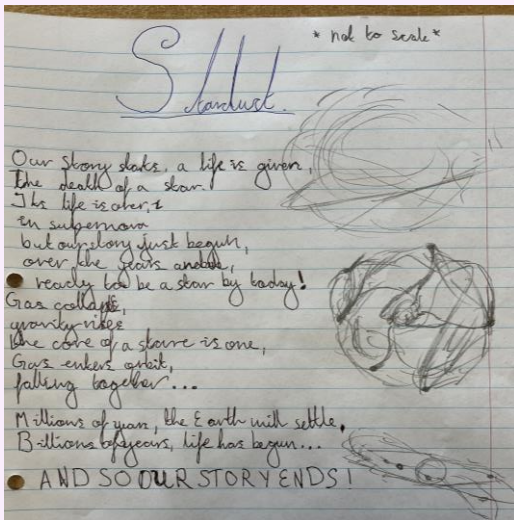 * not to scale *
Stardust.
Our story starts, a life is given,
the death of a star.
Its life is over,
in supernova
but our story just begun,
over the years
ready to be a star by today!
Gas collaps,
gravity rises
the core of a starre is one,
Gas enters orbit,
falling together...
Millions of years, the Earth will settle,
Billions of years, life has begun...
AND SO OUR STORY ENDS!